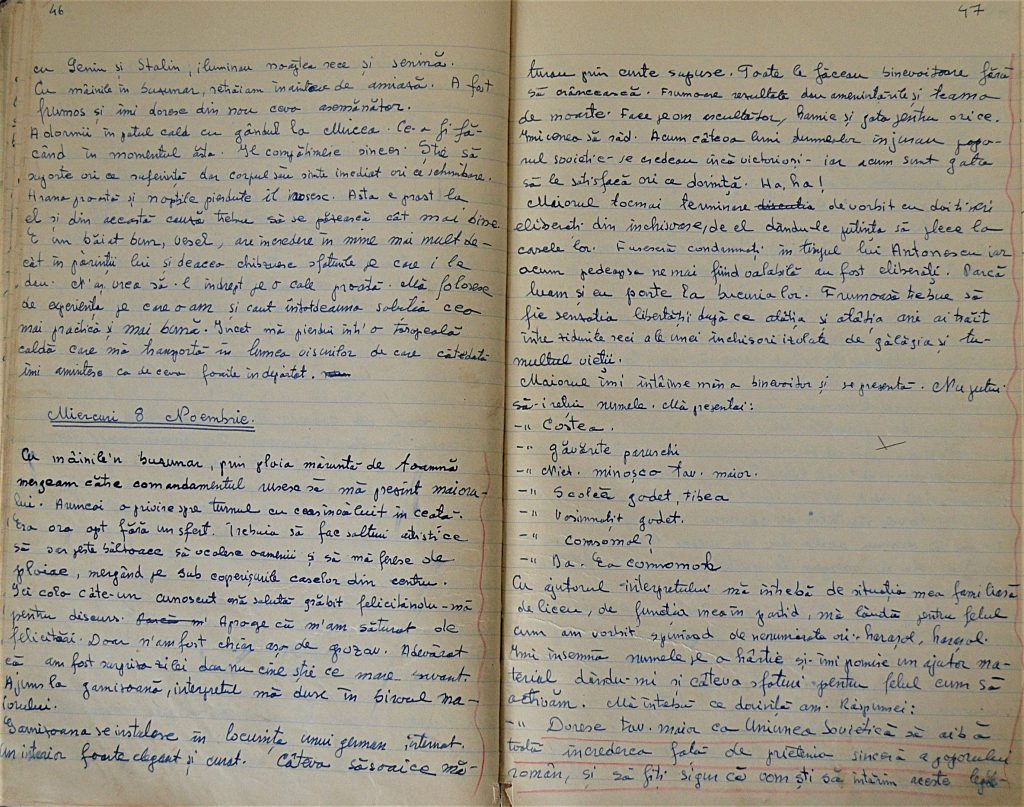 46
cu Lenin și Stalin, iluminau noaptea rece și senină.
Cu mâinile în buzunar, retrăiam înainte de amiază. A fost
frumos si imi doresc din nou ceva asemănător.
Adormii în patul cald cu gândul la Mircea. Ce-a fi fă-
când în momentul ăsta. Îl compătimesc sincer. Știe să
suporte ori ce suferință dar corpul său simte imediat ori ce schimbare.
Hrana proastă și nopțile pierdute îl
el și din această cauză trebue să se păzească cât mai bine.
E un băiat bun, vesel, are incredere în mine mai mult de-
cât în părinții lui și deacea chibzuesc sfaturile pe care i le
dau. N'aș vrea să-l indrept pe o cale proastă. Mă folosesc
de experiența pe care o am și caut întotdeauna soluția cea
mai practică și mai bună. Incet mă pierdui intr'o toropeală
caldă care mă transportă în lumea visurilor de care câteodată
îmi amintesc ca de ceva foarte îndepărtat.
Miercuri 8 Noembrie.
Cu mâinile'n buzunar, prin ploia măruntă de toamnă
mergeam către comandamentul rusesc să mă prezint maioru-
lui. Aruncai o privire spre turnul cu ceas învăluit în ceață.
Era ora opt fără un sfert. Trebuia să fac salturi artistice
să sar peste băltoace să ocolesc oamenii și să mă feresc de
ploaie, mergând pe sub coperișurile caselor din centru.
Ici colo câte-un cunoscut mă salută grăbit felicitându-mă
pentru discurs. Apoge că m'am săturat de
felicitări. Doar n'am fost chiar așa de grozav. Adevărat
că am fost surpriza zilei dar nu cine știe ce mare savant.
Ajuns la garnizoană, interpretul mă duse în biroul ma-
iorului.
Garnizoana se instalase în locuința unui german internat.
Un interior foarte elegant și curat. Câteva săsoaice mă-
47
turau prin curte supuse. Toate le făceau binevoitoare fără
să crâncească. Frumoase rezultate dau amenințările și teama
de moarte. Face pe om ascultător, harnic și gata pentru orice.
Imi venea să râd. Acum câteva luni dumnealor înjurau popo-
rul sovietic - se credeau încă victorioși - iar acum sunt gata
să le satisfacă ori ce dorință. Ha, ha!
Maiorul tocmai terminase discuția de vorbit cu doi tineri
eliberați din închisoare, de el dându-le putința să plece la
casele lor. Fuseseră condamnați în timpul lui Antonescu iar
acum pedeapsa nemai fiind valabilă au fost eliberați. Parcă
luam și eu parte la bucuria lor. Frumoasă trebue să
fie senzația libertății după ce atâția și atâția ani ai trăit
între zidurile reci ale unei închisori izolate de gălăgia și tu-
multul vieții.
Maiorul îmi întinse mâna binevoitor și se prezentă. Nu putui
să-i rețiu numele. Mă prezentai:
-" Costea.
-" găvărite paruschi
-" Niet. minoșco tav. maior.
-" Scolcă godet, tibea
-" Vosimnațit godet.
-" Comsomol?
-" Da. Ea comsomolc
Cu ajutorul interpretului mă întrebă de situația mea familiară
de liceu, de funcția mea în partid, mă lăudă pentru felul
cum am vorbit, spunând de nenumărate ori: harașol, harașol.
Imi însemnă numele pe o hârtie și-imi promise un ajutor ma-
terial dându-mi și câteva sfaturi pentru felul cum să
activăm. Mă întebă ce dorință am. Răspunsei:
-" Doresc tav. maior ca Uniunea Sovietică să aibă
toată increderea față de prietenia sinceră a poporului
român, și să fiți sigur că vom ști să întărim aceste legă-